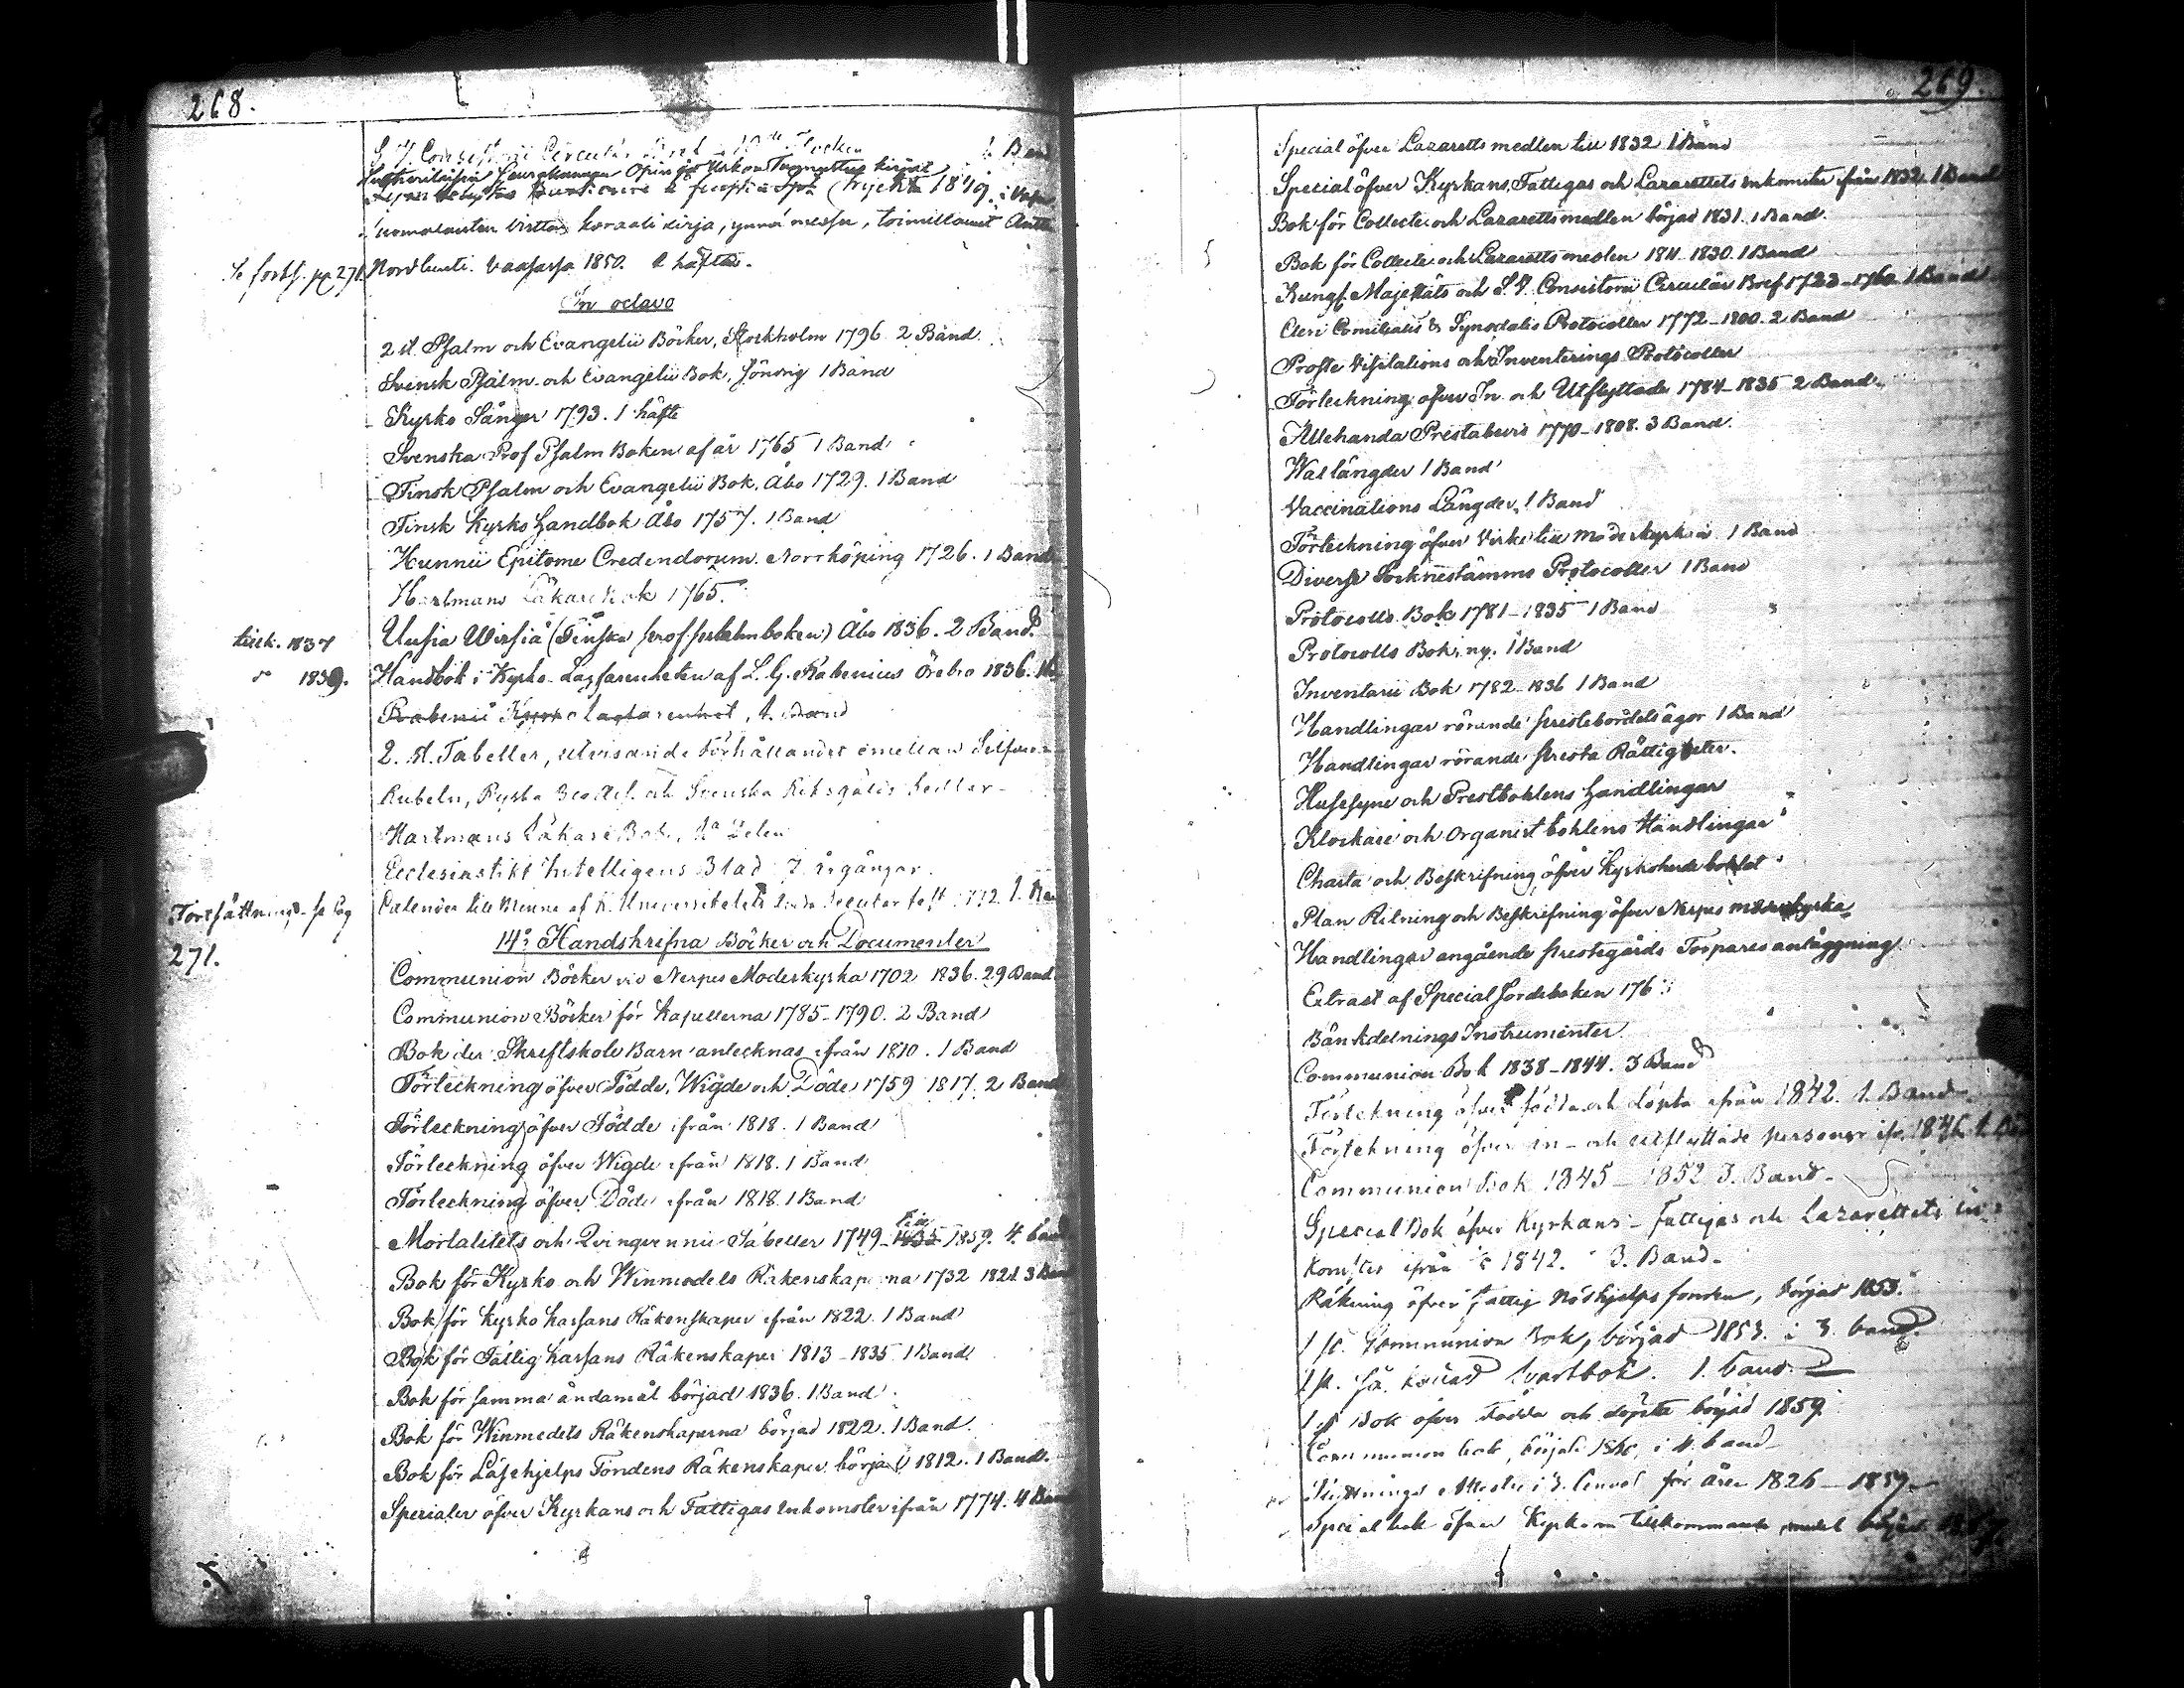 268.
1 Band
Lutherilaisia Seurakunnan Opin ja Uskon Tunnustus kirjat
1849. i Vasa
koraali kirja, ynnä messu, toimittanut Antti
Se forts. pg. 271. Nordlunti. Vaasassa 1850. 2 häften.
In octavo
2 st. Psalm och Evangelii Böcker, Stockholm 1796 2 Band.
Svensk Psalm och Evangelii Bok, Sönrig 1 Band
Kyrko Sånger 1793. 1 häfte
Svenska Prof Psalm Boken af år 1765 1 Band
Finsk Psalm och Evangelii Bok, Åbo 1729. 1 Band
Finsk Kyrko Handbok Åbo 1757. 1 Band
Hunnii Epitome Credendorum. Norrköping 1726. 1 Band
Hartmans Läkare Bok 1765.
tillk. 1837 Uusia Wirsiä (Finska prof psalmboken) Åbo 1836. 2 Band.
1839. Handbok i Kyrko-Lagfarenheten af L. G. Rabenius Örebro 1836.
Rabenii Kyrko lagfarenhet, 1. Band
2. st. Tabeller, utvisande Förhållandet emellan Silfver-
Rubeln, Ryska Bco Ass. och Svenska Riksgälds Sedlar
Hartmans Läkare Bok, 2a Delen
Ecclesiastikt Intelligens Blad 7 årgångar.
Calender till Minne af K. Universitetets
Fortsättning se Pag
271.
14o Handskrifna Böcker och Documenter
Communion Böcker vid Nerpes Moderkyrka 1702 1836. 29 Band
Communion Böcker för Kapellerna 1785-1790. 2 Band
Bok der Skriftskole Barn antecknas ifrån 1810. 1 Band
Förteckning öfver Födde, Wigde och Döde 1759 1817. 2 Band
Förteckning öfver Födde ifrån 1818. 1 Band
Förteckning öfver Wigde ifrån 1818. 1 Band
Förteckning öfver Döde ifrån 1818. 1 Band
Mortalitets och Qvinqvennii Tabeller 1749-1835 1859. 4. band
Bok för Kyrko och Winmedels Räkenskaperna 1732 1821. 3 Band
Bok för Kyrko Kassans Räkenskaper ifrån 1822. 1 Band
Bok för Fattig Kassans Räkenskaper 1813-1835 1 Band
Bok för samma ändamål börjad 1836. 1 Band
Bok för Winmedels Räkenskaperna börjad 1822. 1 Band.
Bok för Läsehjelps Fondens Räkenskaper börjad 1812. 1 Band.
Specialer öfver Kyrkans och Fattigas Inkomster ifrån 1774. 4 Band
269.
Special öfver Lazaretts medlen till 1832 1 Band
Special öfver Kyrkans, Fattigas och Lazarettets Inkomster ifrån 1832. 1 Band
Bok för Collecte och Lazarettsmedlen börjad 1831. 1 Band.
Bok för Collecte och Lazaretts medlen 1811-1830. 1 Band
Kungl. Majestäts och S. V. Consistorii Circulär Bref 1723-1760. 1 Band
Cleri Comitialis & Synodalis Protocoller 1772-1800. 2 Band
Proste Visitations och Inventerings Protocoller
Förteckning öfver In och Utflyttade 1784-1835 2 Band.
Allehanda Prestabevis 1770-1808. 3 Band.
Wallängder 1 Band
Vaccinations Längder, 1 Band
Förteckning öfver Virke till Moderkyrkan 1 Band
Diverse Socknestämmo Protocoller 1 Band
Protocolls Bok 1781-1835 1 Band
Protocolls Bok, ny. 1 Band
Inventarii Bok 1782-1836 1 Band
Handlingar rörande prestebordets ägor 1 Band
Handlingar rörande presta Rättigheter.
Husesyne och Prestbohlens Handlingar
Klockare och Organist bohlens Handlingar
Charta och Beskrifning öfver Kyrkoherde bohlet
Plan Ritning och Beskrifning öfver Nerpes moderkyrka
Handlingar angående prestegårds Torpares anläggning
Extract af Special Jordeboken 176
Bänkdelnings Instrumenter
Communion Bok 1838-1844. 3 Band
Förtekning öfver födda och döpta ifrån 1842. 1. Band.
Förtekning öfver in- och utflyttade personer ifr. 1846. 1.
Communion Bok 1845-1852 3. Band.
Special Bok öfver Kyrkans- Fattigas och Lazarettets in-
komster ifrån 1842. 3. Band.
Räkning öfver Fattig Nödhjelps fonden, börjad 1853.
1 st. Communion Bok, börjad 1853. i 3. band.
1 st. Svartbok. 1. band.
1 st Bok öfver Födda och döpta börjad 1859.
Communion bok, började 1860, i 4. band
Flyttnings Attester i 3. för åren 1826-1859
Special bok öfver Kyrkan tillkommande medel börjad